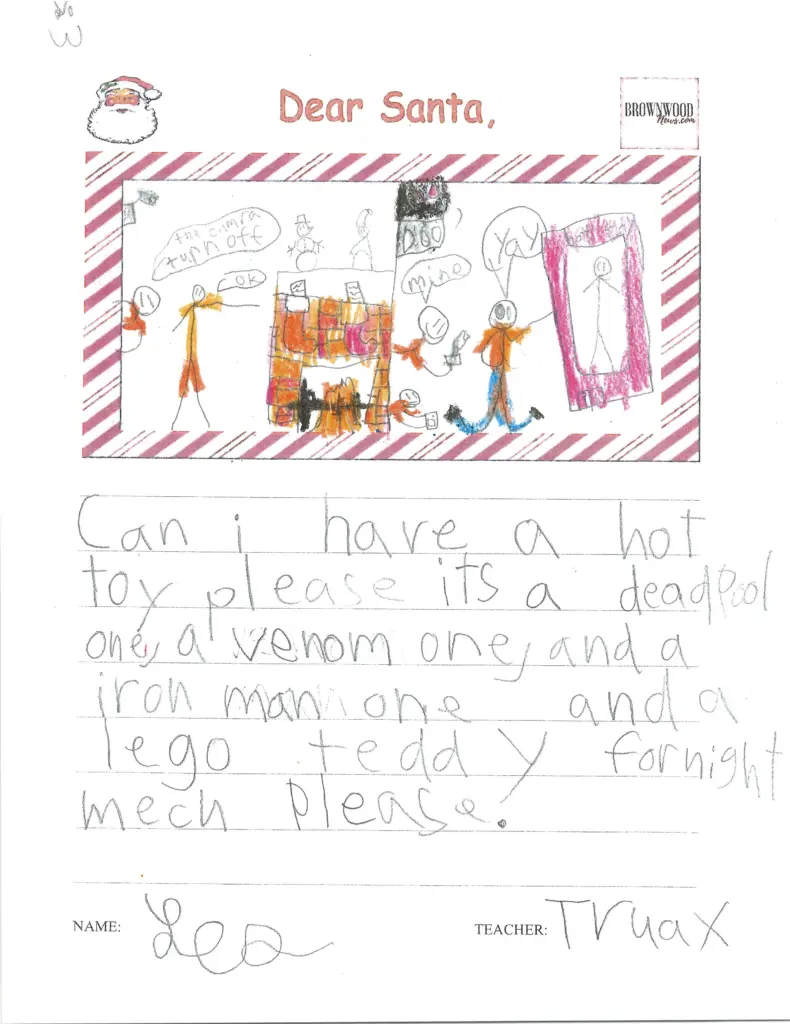 Dear Santa,
BROWNWOOD
News.com
the camra
turn off
OK
mine
yay
Can i have a hot
toy please its a deadpool
one, a venom one, and a
iron man one and a
lego teddy fornight
mech please.
NAME:
TEACHER: Truax